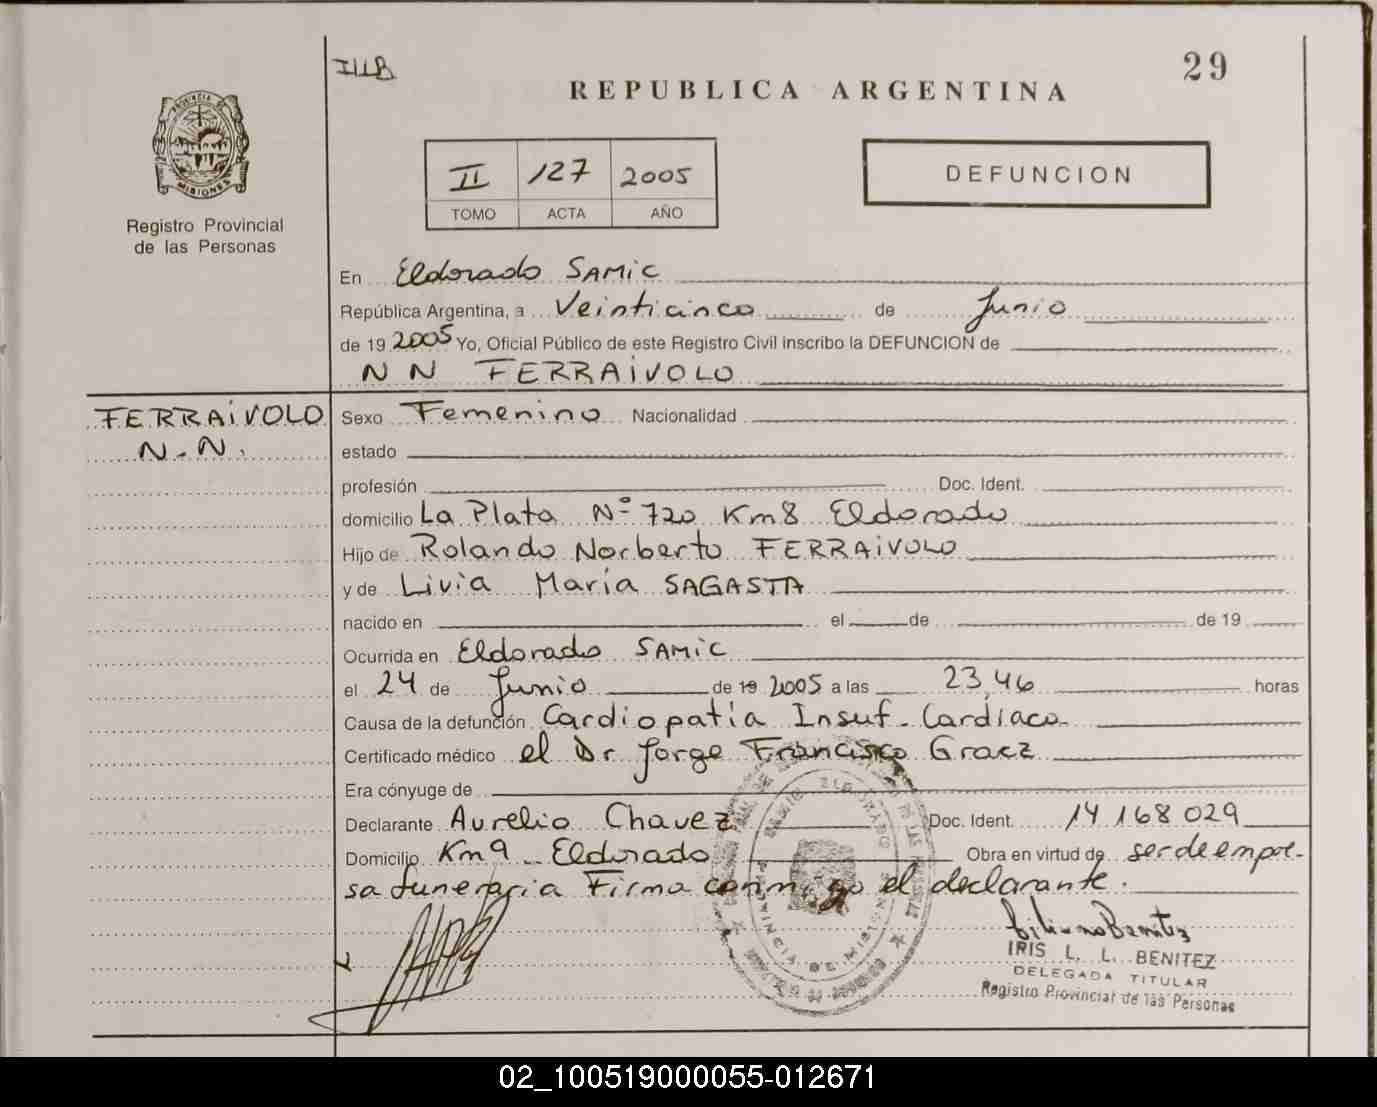 IIIB
29
REPUBLICA ARGENTINA
PROVINCIA DE MISIONES
Registro Provincial
de las Personas
II 127 2005
TOMO ACTA AÑO
DEFUNCION
En Eldorado SAMIC
República Argentina, a Veinticinco de Junio
de 19 2005 Yo, Oficial Público de este Registro Civil inscribo la DEFUNCION de
N N FERRAIVOLO
FERRAIVOLO
N.N.
Sexo Femenino Nacionalidad
estado
profesión Doc. Ident.
domicilio La Plata Nº 720 Km 8 Eldorado
Hijo de Rolando Norberto FERRAIVOLO
y de Livia María SAGASTA
nacido en el de de 19
Ocurrida en Eldorado SAMIC
el 24 de Junio de 19 2005 a las 23,46 horas
Causa de la defunción Cardiopatía Insuf. Cardíaca
Certificado médico el Dr Jorge Francisco Graez
Era cónyuge de
Declarante Aurelio Chavez Doc. Ident. 14 168 029
Domicilio Km 9 Eldorado Obra en virtud de ser de empre-
sa funeraria Firma conmigo el declarante.
IRIS L. L. BENITEZ
DELEGADA TITULAR
Registro Provincial de las Personas
PROVINCIA DE MISIONES
02_100519000055-012671